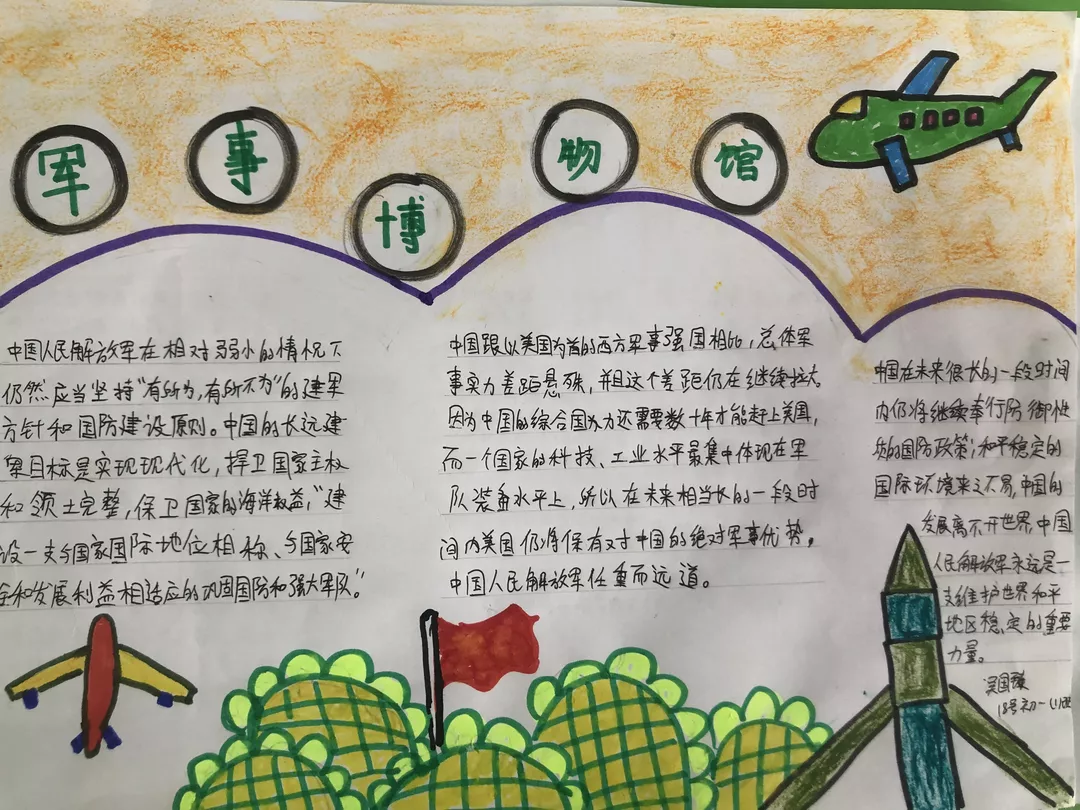 军事博物馆
中国人民解放军在相对弱小的情况下
仍然应当坚持“有所为,有所不为”的建军
方针和国防建设原则。中国的长远建
军目标是实现现代化,捍卫国家主权
和领土完整,保卫国家的海洋权益,“建
设一支与国家国际地位相称、与国家安
全和发展利益相适应的巩固国防和强大军队。”
中国跟以美国为首的西方军事强国相比,总体军
事实力差距悬殊,并且这个差距仍在继续拉大。
因为中国的综合国力还需要数十年才能赶上美国,
而一个国家的科技、工业水平最集中体现在军
队装备水平上,所以在未来相当长的一段时
间内美国仍将保有对中国的绝对军事优势。
中国人民解放军任重而远道。
中国在未来很长的一段时间
内仍将继续奉行防御性
的国防政策;和平稳定的
国际环境来之不易,中国的
发展离不开世界,中国
人民解放军永远是一
支维护世界和平
地区稳定的重要
力量。
18号初一